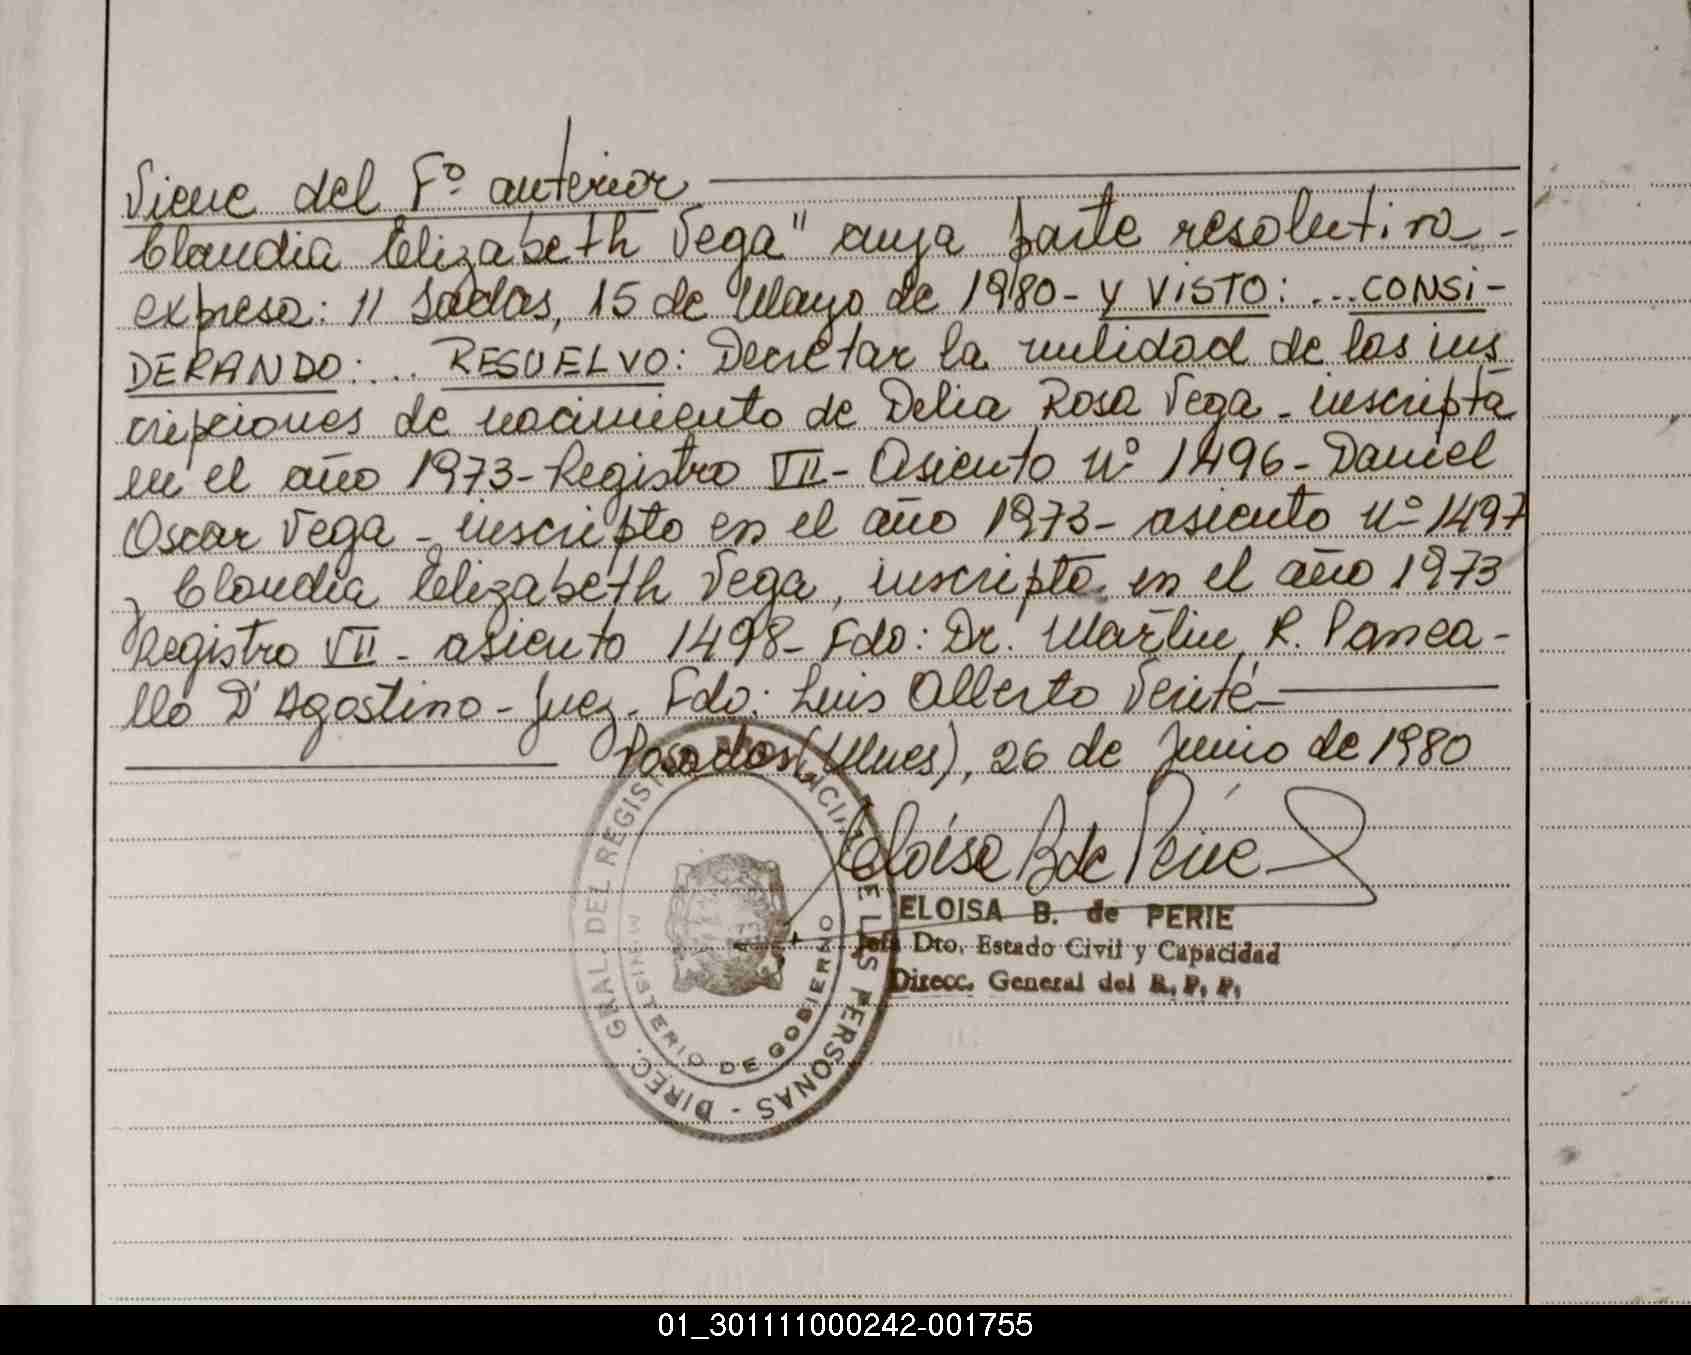 Viene del Fº anterior
Claudia Elizabeth Vega" cuya parte resolutiva -
expresa: 11 Saladas, 15 de Mayo de 1980 - Y VISTO: ... CONSI-
DERANDO: ... RESUELVO: Decretar la nulidad de las ins
cripciones de nacimiento de Delia Rosa Vega - inscripta
en el año 1973 - Registro VII - Asiento Nº 1496 - Daniel
Oscar Vega - inscripto en el año 1973 - asiento Nº 1497
y Claudia Elizabeth Vega, inscripta en el año 1973
Registro VII - asiento 1498 - Fdo: Dr. Martin R. Panca-
llo D'Agostino - Juez. Fdo: Luis Alberto
Posadas (Mnes), 26 de Junio de 1980
Eloisa B de Perié
ELOISA B. de PERIE
Jefe Dto. Estado Civil y Capacidad
Direcc. General del R. P. P.
DIREC. GRAL. DEL REGISTRO DE LAS PERSONAS -
MINISTERIO DE GOBIERNO
01_301111000242-001755